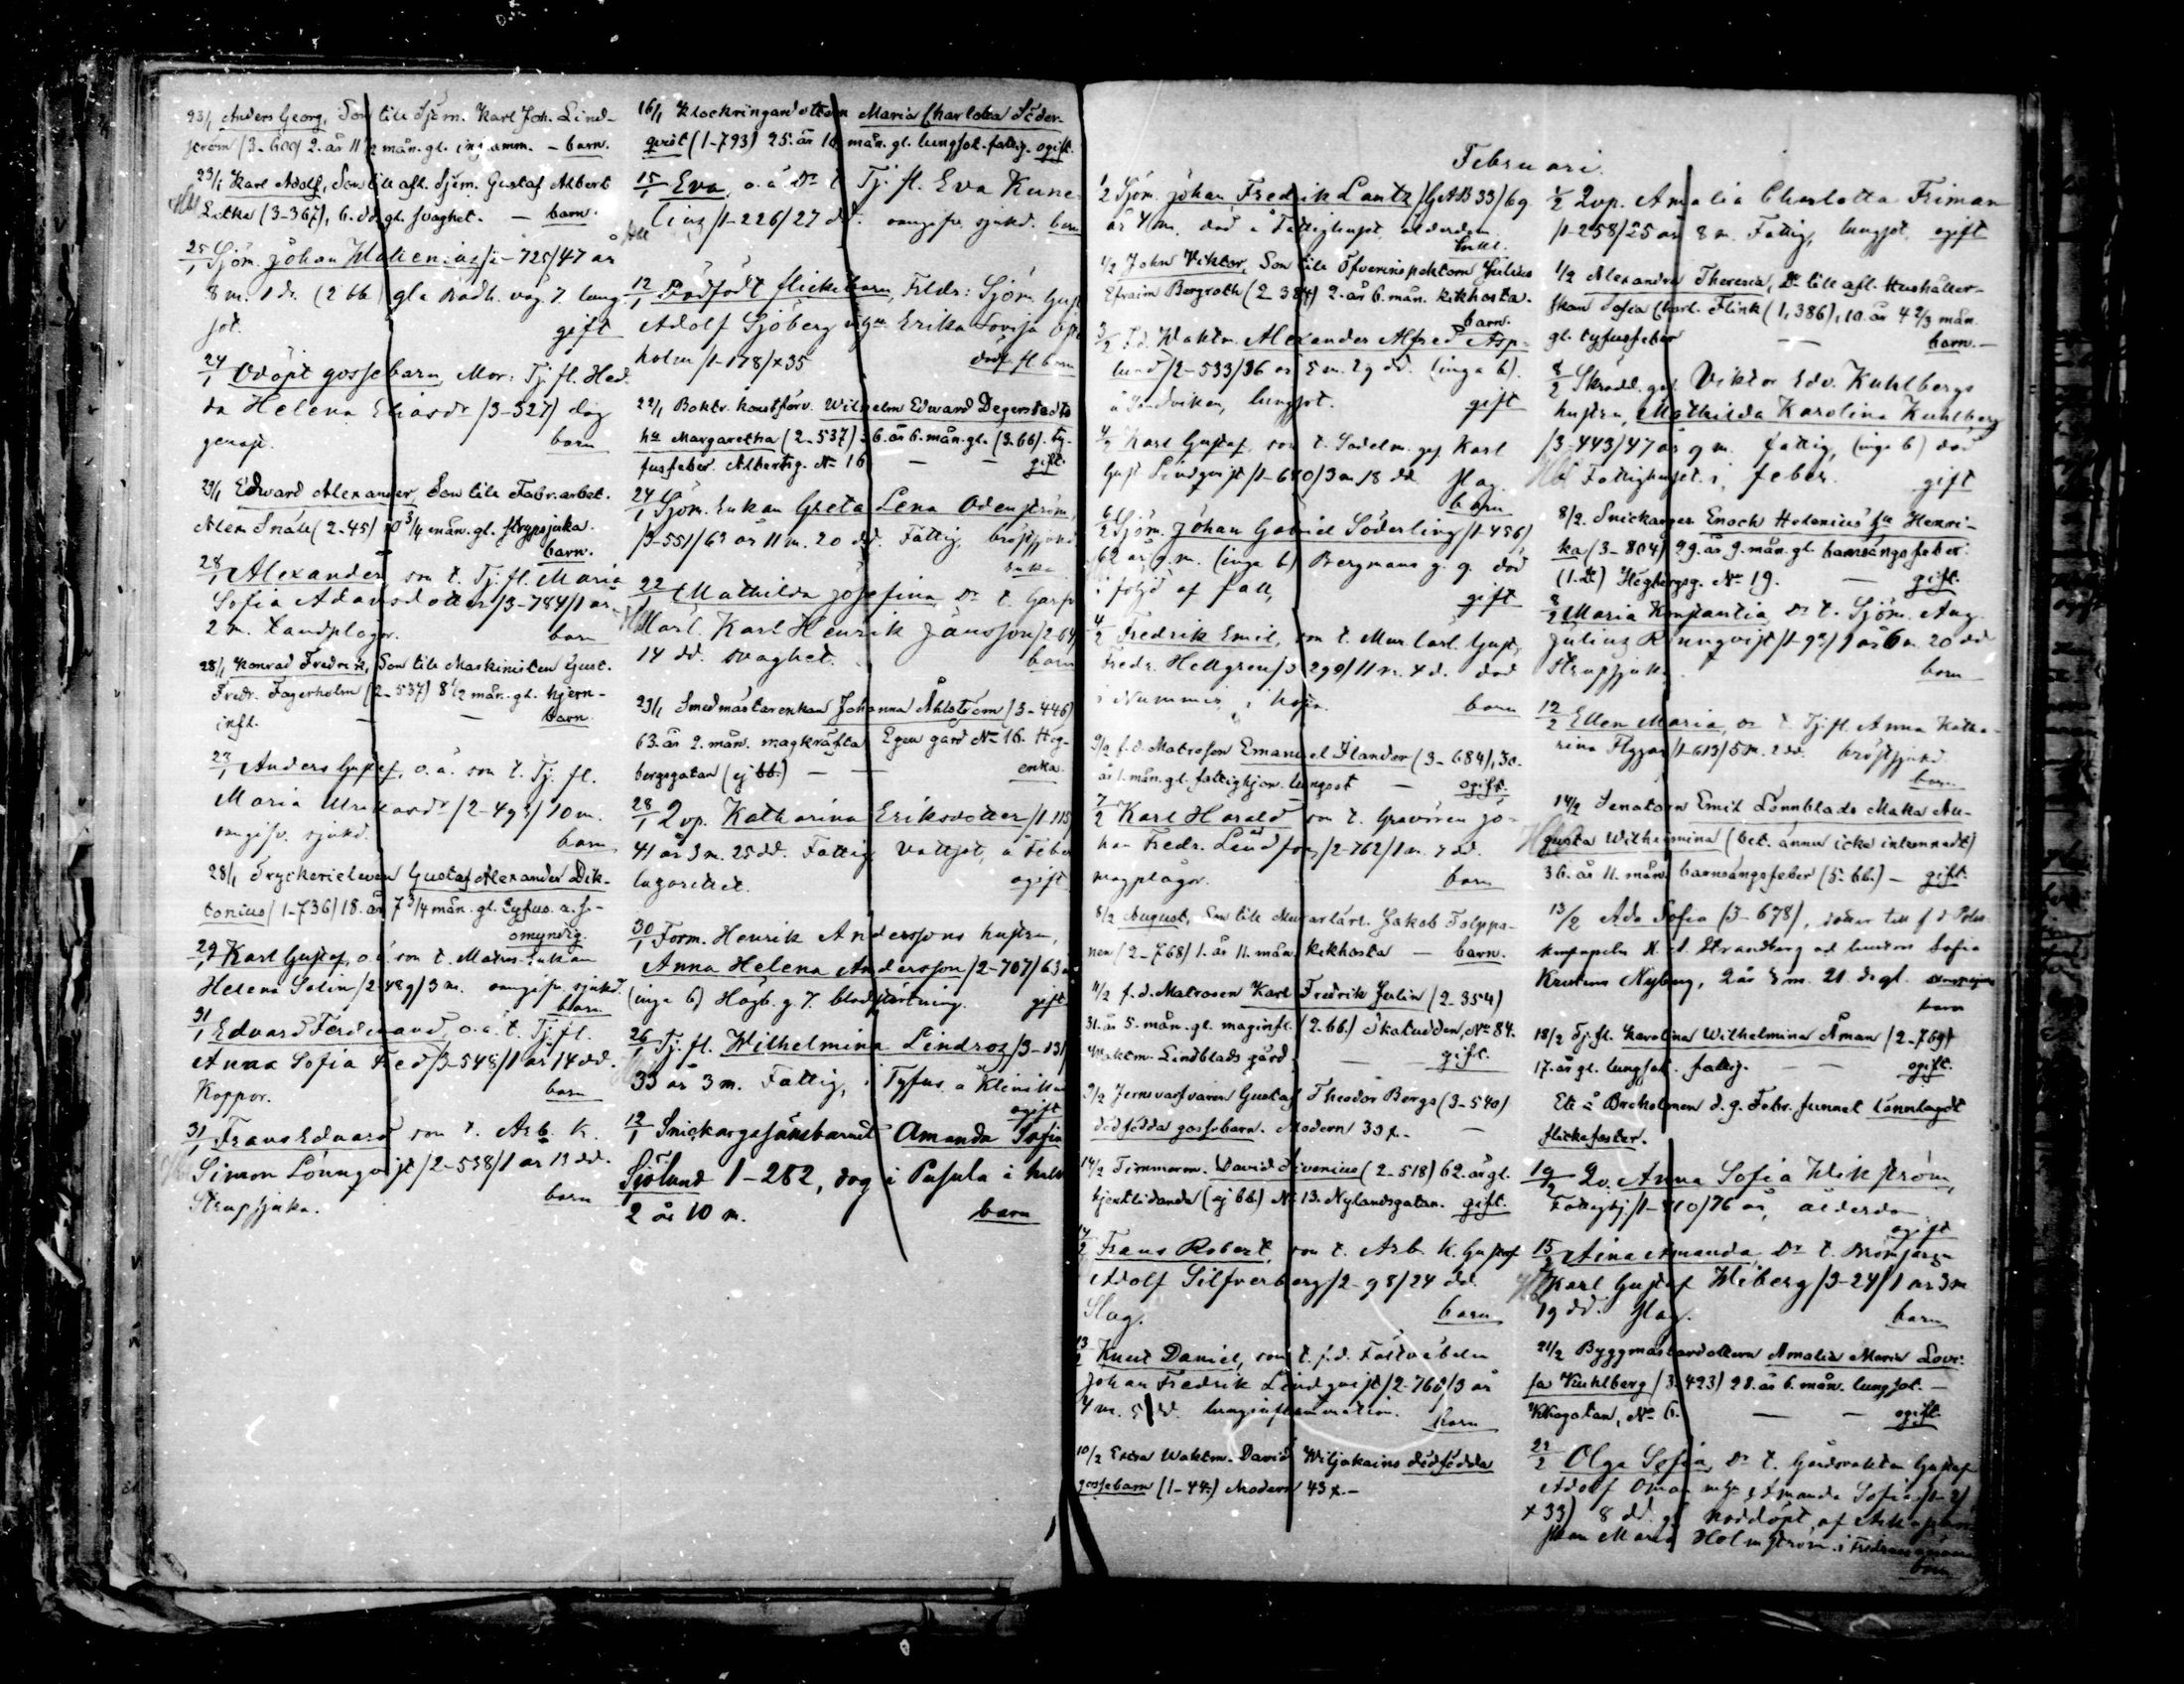 23/1 Anders Georg, Son till Sjöm. Karl Joh. Lind-
ström (3-600) 2. år 11 1/2 mån. gl. inflamm. - barn.
29/1 Karl Adolf, Son till afl. Sjöm. Gustaf Albert
(3-367), 6. dd. gl. svaghet. - barn.
25/1 Sjöm. Johan Walenius /1-725/ 47 år
8 m. 1 d. (2 bb) gla Badh. väg. 7. lung-
sot. gift
24/1 Odöpt gossebarn, Mor: Tj. fl. Hed-
da Helena Eliasdr /3-527/ dog
genast. barn
29/1 Edward Alexander, Son till Fabr. arbet.
Alex Snäll (2-45) 10 3/4 mån. gl. strypsjuka.
barn.
28/1 Alexander son t. Tj. fl. Maria
Sofia Adamsdotter /3-784/ 1 år
2 m. tandplågor. barn
28/1 Konrad Fredrik, Son till Maskinisten Gust.
Fredr. Fagerholm (2-537) 8 1/2 mån. gl. hjern-
infl. - - barn.
23/1 Anders Gustaf, o.ä. son t. Tj. fl.
Maria /2-493/ 10 m.
omgifv. sjukd. barn
28/1 Tryckerieleven Gustaf Alexander Dik-
tonius (1-736) 18. år 7 3/4 mån. gl. Tyfus.
omyndig.
29/1 Karl Gustaf, o.ä. son t. Matros-enkan
Helena Solin /2-489/ 3 m. omgifv. sjukd.
barn
31/1 Edvard Ferdinand, o.ä. t. Tj. fl.
Anna Sofia /3-548/ 1 år 14 dd.
Koppor. barn
31/1 Frans Edvard son t. Arb. k.
Simon Lönnqvist /2-538/ 1 år 13 dd.
Strupsjuka. barn
16/1 Klockringaredottern Maria Charlotta Söder-
qvist (1-793) 25. år 10 mån. gl. lungsot. fattig. ogift.
15/1 Eva, o.ä. Dr t. Tj. fl. Eva Kune-
lius /1-226/ 27 dd. omgifv. sjukd. barn
12/1 Dödfödt flickebarn, Föräldr: Sjöm. Gust
Adolf Sjöberg o. hu Erika Lovisa
holm /1-178/ x35 dödf. fl. barn
22/1 Boktr. konstförv. Wilhelm Edward Degerstedts
hu Margaretha (2-537) 6. år 6. mån. gl. (3. bb). ty-
fusfeber. Albertsg. No 16 - - gift.
24/1 Sjöm. Enkan Greta Lena Odenström,
/3-551/ 62 år 11 m. 20 dd. Fattig, bröstsjukd
enka
22/1 Mathilda Josefina Dr t. Garfv
Karl Henrik Jansson /2-64/
14 dd. svaghet. barn
23/1 Smedmästarenkan Johanna Åhlström (3-446)
63. år 2. mån. magkräfta Egen gård No 16. Hög-
bergsgatan (ej bb.) - - enka.
28/1 Qvp. Katharina Eriksdotter /1-115/
41 år 3 m. 25 dd. Fattig Vattsot, å Feber
lazarettet. ogift
30/1 Form. Henrik Anderssons hustru,
Anna Helena Andersson /2-707/ 63 å
(inga b) Högb. g. 7. blodstörtning. gift
26/1 Tj. fl. Wilhelmina Lindros /3-131
33 år 3 m. Fattig, i Tyfus å Kliniken
ogift
12/1 Snickargesällsbarnet Amanda Sofia
Sjölund 1-252, dog i Pusula i
2 år 10 m. barn
Februari.
1/2 Sjöm. Johan Fredrik Lantz /GAB 33/ 69
år 4 m. död å Fattighuset, ålderdom
Enkl.
1/2 John Viktor, Son till Öfverinspektorn Julius
Efraim Bergroth (2-384) 2. år 6. mån. kikhosta.
barn.
3/2 F.d. Waktm. Alexander Alfred Asp-
lund /2-533/ 36 år 5 m. 29 dd. (inga b).
å Sandviken, lungsot. gift
4/2 Karl Gustaf, son t. Sadelm. ges. Karl
Gust Lindqvist /1-680/ 3 m. 18 dd. slag
barn
6/2 Sjöm. Johan Gabriel Söderling /1-456/
62 år 9 m. (inga b) Bergmans g. 9. död
i följd af fall, gift
4/2 Fredrik Emil, son t. Murlärl. Gust.
Fredr. Hellgren /3-290/ 11 m. 4 d. död
i Nummis, i barn
9/2 f.d. Matrosen Emanuel Ilander (3-684), 30.
år 1. mån. gl. fattighjon. lungsot - ogift.
7/2 Karl Harald son t. Gravören Jo-
han Fredr. Lindfors /2-762/ 1 m. 7 dd.
magplågor. barn
8/2 August, Son till Murarlärl. Jakob Tolppa-
nen (2-768) 1. år 11. mån. kikhosta - barn.
11/2 f.d. Matrosen Karl Fredrik Julin (2-354)
31. år 5. mån. gl. maginfl. (2. bb.) Skatudden, No 84.
Waktm. Lindblads gård. - - gift.
9/2 Jernvarfvaren Gustaf Theodor Bergs (3-540)
dödfödda gossebarn. Modern 33 x. -
14/2 Timmerm. David Sivenius (2-518) 62. år gl.
hjertlidande (ej bb.) No 13. Nylandsgatan. gift.
14/2 Frans Robert, son t. Arb. k. Gustaf
Adolf Silfverberg /2-98/ 24 dd.
Slag. barn
13/2 Knut Daniel, son t. f.d. Fältväbeln
Johan Fredrik Lindqvist /2-768/ 3 år
4 m. 5 dd. lunginflammation. barn
10/2 Extra Waktm. David Wiljakains dödfödda
gossebarn (1-44.) Modern 43 x. -
1/2 Qvp. Amalia Charlotta Friman
/1-258/ 25 år 8 m. Fattig, lungsot. ogift
1/2 Alexandra Theresia, Dr till afl. Hushåller-
skan Sofia Charl. Flink (1,386), 10. år 4 2/3 mån.
gl. tyfusfeber - barn.-
8/2 Skrädd. ges. Viktor Edv. Kuhlbergs
hustru, Mathilda Karolina Kuhlberg
/3-443/ 47 år 9 m. fattig, (inga b) död
å Fattighuset. i feber. gift
8/2. Snickarges. Enoch Helenius' hu Henri-
ka (3-804) 29. år 9. mån. gl. barnsängsfeber.
(1. b.) Högbergsg. No 19. - gift.
8/2 Maria Konstantia Dr t. Sjöm. Aug.
Julius Rönnqvist /1-92/ 1 år 6 m. 20 dd
Strupsjuk. barn
12/2 Ellen Maria, Dr t. Tj. fl. Anna Katha-
rina Flygar /1-613/ 5 m. 2 dd. bröstsjukd.
barn
14/2 Senatorn Emil Lönnblads Maka Au-
gusta Wilhelmina (bet. ännu icke inlemnadt)
36. år 11. mån. barnsängsfeber (5. bb.) - gift.
13/2 Ada Sofia (3-678), dotter till f d Polis
Strandberg od hustrun Sofia
Nyberg, 2 år 8 m. 21. d. gl.
barn
18/2 Tj. fl. Karolina Wilhelmina Åman (2-769)
17. år gl. lungsot. fattig. - - ogift.
Ett å Busholmen d. 9. Febr. funnet lönnlagdt
flickefoster.
19/2 Qv. Anna Sofia Wikström,
Fattighj. /1-710/ 76 år, ålderdom
ogift
15/2 Aina Amanda Dr t.
Karl Gustaf Wiberg /3-24/ 1 år 3 m
19 dd. slag. barn
21/2 Byggmästardottern Amalia Maria Lovi-
sa Kuhlberg (3-423) 28. år 6. mån. lungsot. -
Wikogatan, No 6. - - ogift.
22/2 Olga Sofia, Dr t. Gårdsvakten Gustaf
Adolf Öman m. h. Amanda Sofia /1-2/
x 33) 8 dd. gl. nöddöpt af
Maria Holmström i
barn